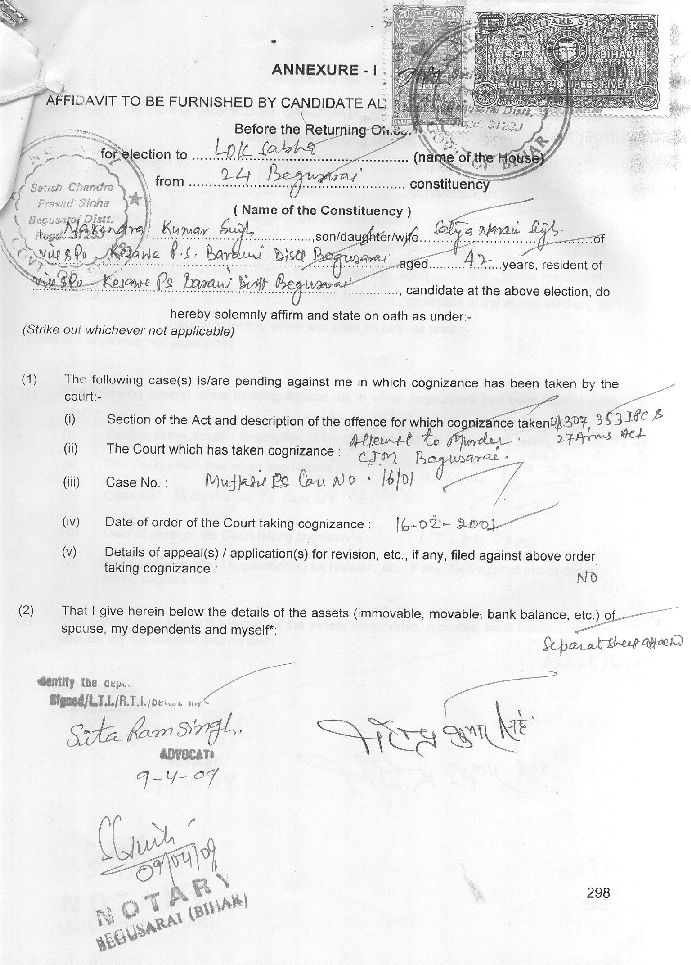 ANNEXURE - I
AFFIDAVIT TO BE FURNISHED BY CANDIDATE AL
Before the Returning Officer
for election to Lok Sabha (name of the House)
from 24 Begusarai constituency
( Name of the Constituency )
Satish Chandra
Prasad Sinha
Begusarai Distt.
Kumar Singh ,son/daughter/wife Satya Narain Singh of
Vill & Po Kesawe P.S. Barauni Distt Begusarai aged 42 years, resident of
Vill & Po Kesawe Ps Barauni Distt Begusarai, candidate at the above election, do
hereby solemnly affirm and state on oath as under:-
(Strike out whichever not applicable)
(1) The following case(s) is/are pending against me in which cognizance has been taken by the
court:-
(i) Section of the Act and description of the offence for which cognizance taken: 307, 353 IPC &
27 Arms Act
Attempt to Murder.
(ii) The Court which has taken cognizance : CJM Begusarai.
(iii) Case No. : Muffasil PS Case No. 16/01
(iv) Date of order of the Court taking cognizance : 16-02-2001
(v) Details of appeal(s) / application(s) for revision, etc., if any, filed against above order
taking cognizance :
NO
(2) That I give herein below the details of the assets (immovable, movable, bank balance, etc.) of
spouse, my dependents and myself*:
Separat sheet attached
Identify the
Signed/L.T.I./R.T.I./
Sita Ram Singh.
ADVOCATE
9-4-09
09/04/09
NOTARY
BEGUSARAI (BIHAR)
298